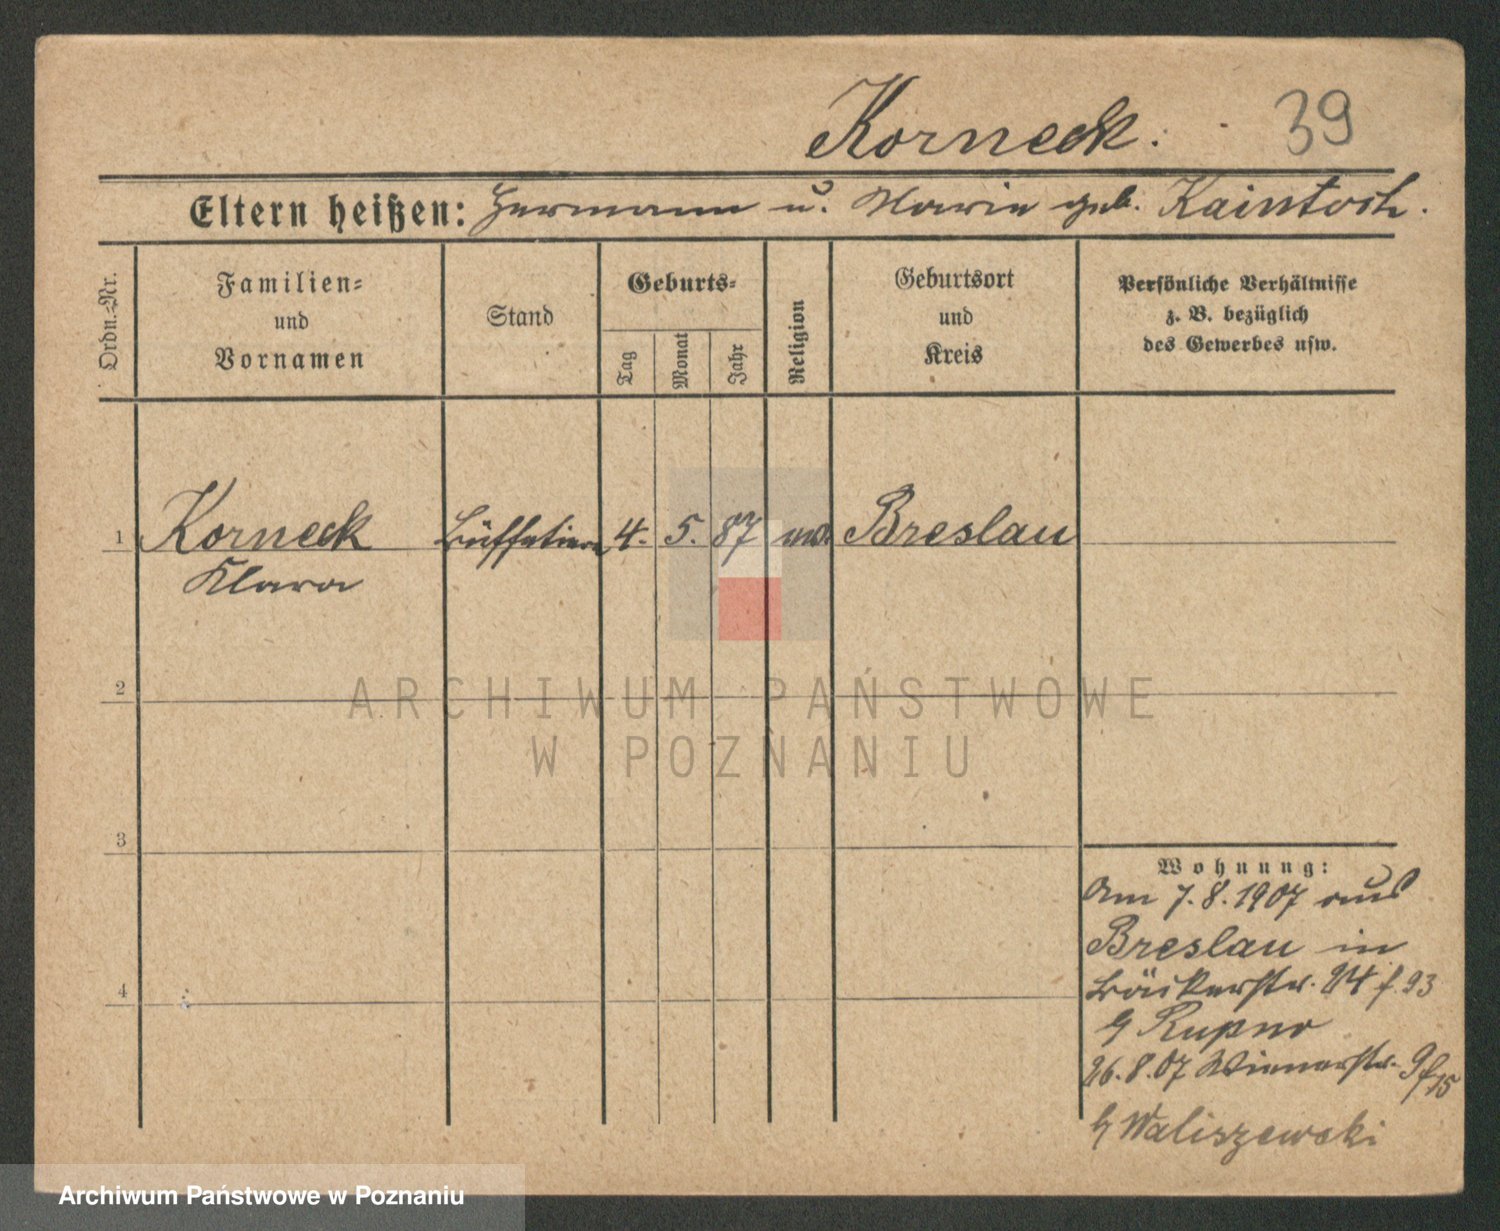 Korneck. 39
Eltern heißen: Hermann u. Marie geb. Kaintoch.
Ordn.-Nr.
Familien-
und
Vornamen
Stand
Geburts-
Tag
Monat
Jahr
Religion
Geburtsort
und
Kreis
Persönliche Verhältnisse
z. B. bezüglich
des Gewerbes usw.
1 Korneck Büffetiere 4. 5. 87 Breslau
Klara
2
ARCHIWUM PAŃSTWOWE
W POZNANIU
3
Wohnung:
Am 7.8.1907 aus
Breslau in
Bäckerstr. 24 f. 93
4
b/ Rupno
26.8.07 Wienerstr. 9 f 15
b/ Waliszewski
Archiwum Państwowe w Poznaniu